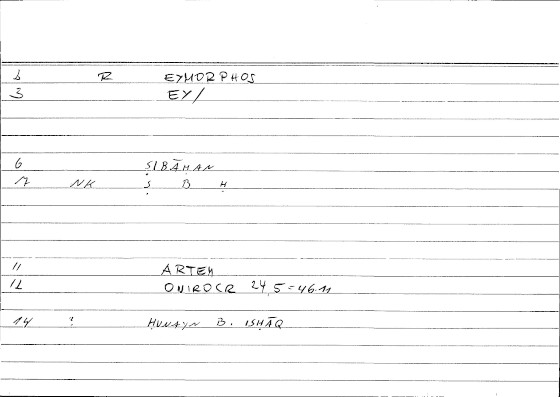 2 R EYMORPHOS
3 EY/
6 ṢIBĀḤAN
7 NK Ṣ B Ḥ
11 ARTEM
12 ONIROCR 24,5=46.11
14 ? ḤUNAYN B. ISḤĀQ